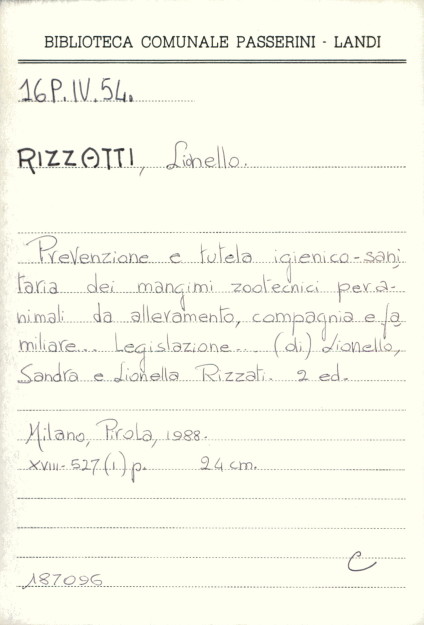 BIBLIOTECA COMUNALE PASSERINI - LANDI
16P.IV.54.
RIZZOTTI, Lionello.
Prevenzione e tutela igienico-sani
taria dei mangimi zootecnici per a-
nimali da allevamento, compagnia e fa
miliare... Legislazione... (di) Lionello,
Sandra e Lionella Rizzati. 2 ed.
Milano, Pirola, 1988.
XVIII-527(1) p. 24 cm.
C
187096